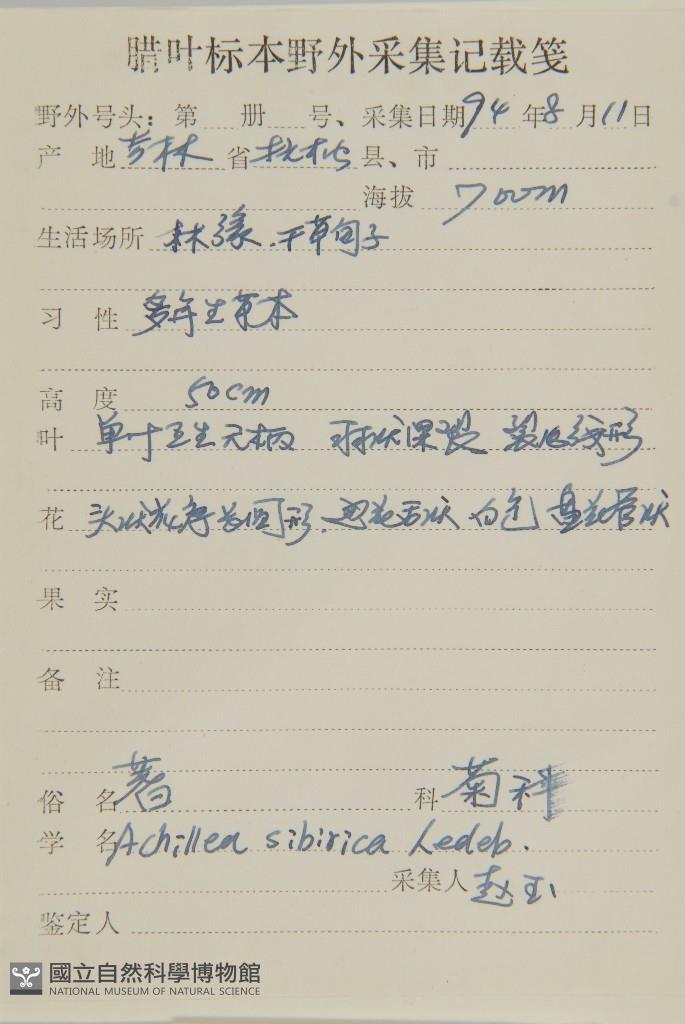 腊叶标本野外采集记载笺
野外号头：第 册 号、采集日期94年8月11日
产 地 吉林 省 抚松 县、市
海拔 700m
生活场所 林缘、干草甸子
习 性 多年生草本
高 度 50cm
叶 单叶互生无柄 球状深裂 裂片线形
花 头状花序 形，边花舌状 白色 盘花管状
果 实
备 注
俗 名 蓍 科 菊科
学 名 Achillea sibirica Ledeb.
采集人 赵玉
鉴定人
國立自然科學博物館
NATIONAL MUSEUM OF NATURAL SCIENCE